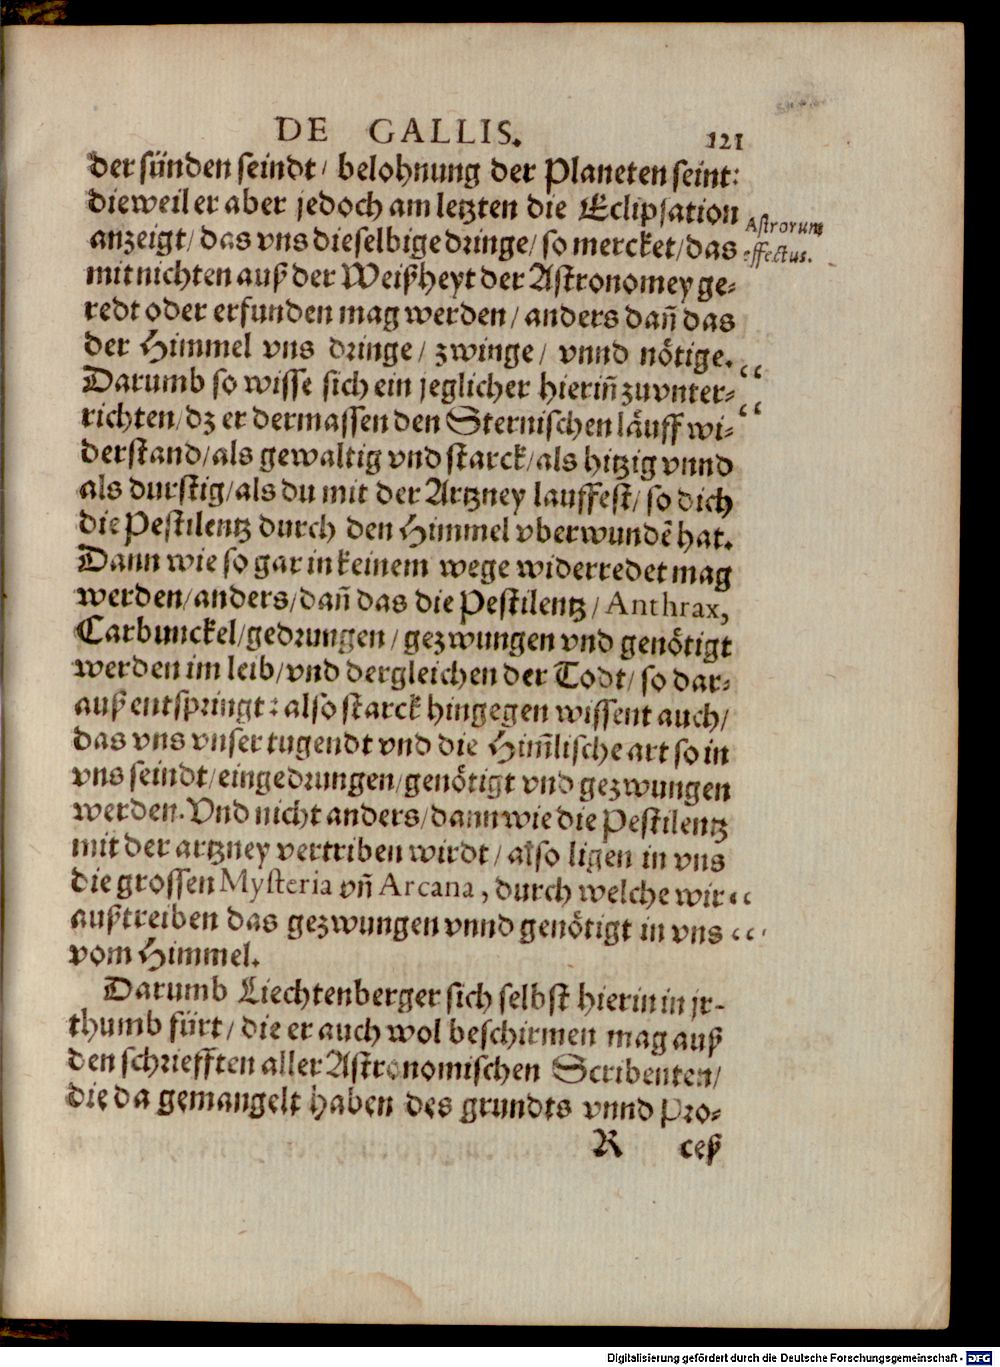 DE GALLIS. 121
der sünden seindt/ belohnung der Planeten seint:
dieweil er aber jedoch am letzten die Eclipsation
Astrorum
anzeigt/ das vns dieselbige dringe/ so mercket/ das
effectus.
mit nichten auß der Weißheyt der Astronomey ge-
redt oder erfunden mag werden/ anders dañ das
der Himmel vns dringe/ zwinge/ vnnd nötige.
Darumb so wisse sich ein jeglicher hieriñ zuvnter-
richten/ dz er dermassen den Sternischen läuff wi-
derstand/ als gewaltig vnd starck/ als hitzig vnnd
als durstig/ als du mit der Artzney lauffest/ so dich
die Pestilentz durch den Himmel vberwundẽ hat.
Dann wie so gar in keinem wege widerredet mag
werden/ anders/ dañ das die Pestilentz/ Anthrax,
Carbunckel/ gedrungen/ gezwungen vnd genötigt
werden im leib/ vnd dergleichen der Todt/ so dar-
auß entspringt: also starck hingegen wissent auch/
das vns vnser tugendt vnd die Him̃lische art so in
vns seindt/ eingedrungen/ genötigt vnd gezwungen
werden. Vnd nicht anders/ dann wie die Pestilentz
mit der artzney vertriben wirdt/ also ligen in vns
die grossen Mysteria vñ Arcana, durch welche wir
außtreiben das gezwungen vnnd genötigt in vns
vom Himmel.
Darumb Liechtenberger sich selbst hierin in jr-
thumb fürt/ die er auch wol beschirmen mag auß
den schriefften aller Astronomischen Scribenten/
die da gemangelt haben des grundts vnnd Pro-
R ceß
Digitalisierung gefördert durch die Deutsche Forschungsgemeinschaft - DFG